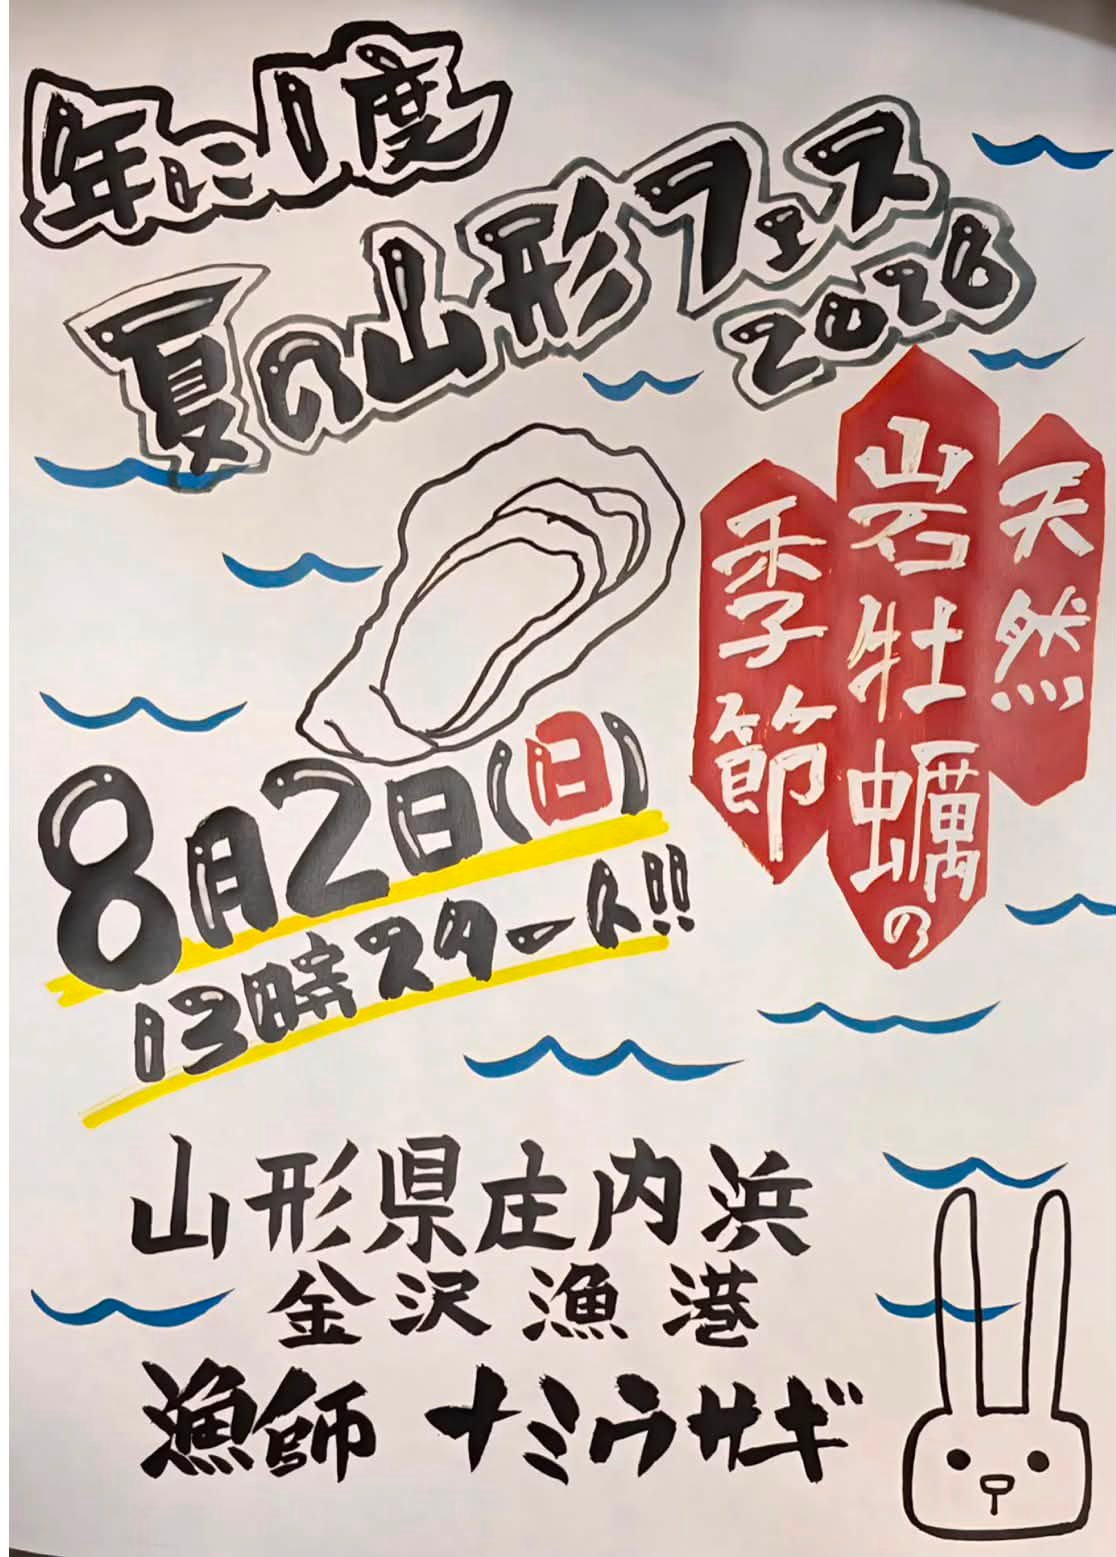 年に1度
夏の山形フェス
2026
天然
岩牡蠣の
季節
8月2日(日)
13時スタート!!
山形県庄内浜
金沢漁港
漁師 ナミウサギ